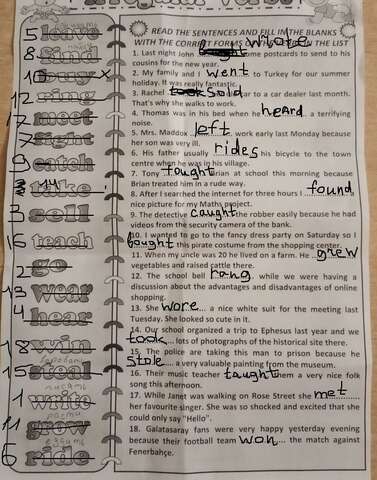 Irregular Verbs
READ THE SENTENCES AND FILL IN THE BLANKS
WITH THE CORRECT FORMS ON THE LIST
5 leave
8 find
10 buy
12 ring
17 meet
7 fight
9 catch
14 take
3 sell
16 teach
2 go
13 wear
4 hear
18 win
15 steal
1 write
11 grow
6 ride
1. Last night John wrote some postcards to send to his
cousins for the new year.
2. My family and I went to Turkey for our summer
holiday. It was really fantastic.
3. Rachel sold car to a car dealer last month.
That's why she walks to work.
4. Thomas was in his bed when he heard a terrifying
noise.
5. Mrs. Maddox left work early last Monday because
her son was very ill.
6. His father usually rides his bicycle to the town
centre when he was in his village.
7. Tony fought Brian at school this morning because
Brian treated him in a rude way.
8. After I searched the internet for three hours I found
nice picture for my Maths project.
9. The detective caught the robber easily because he had
videos from the security camera of the bank.
10. I wanted to go to the fancy dress party on Saturday so I
bought this pirate costume from the shopping center.
11. When my uncle was 20 he lived on a farm. He grew
vegetables and raised cattle there.
12. The school bell rang while we were having a
discussion about the advantages and disadvantages of online
shopping.
13. She wore a nice white suit for the meeting last
Tuesday. She looked so cute in it.
14. Our school organized a trip to Ephesus last year and we
took lots of photographs of the historical site there.
15. The police are taking this man to prison because he
stole a very valuable painting from the museum.
16. Their music teacher taught them a very nice folk
song this afternoon.
17. While Janet was walking on Rose Street she met
her favourite singer. She was so shocked and excited that she
could only say "Hello".
18. Galatasaray fans were very happy yesterday evening
because their football team won the match against
Fenerbahçe.